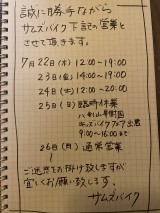 誠に勝手ながら
サムズバイク下記の営業と
させて頂きます。
7月22日(水) 12:00~19:00
23日(金) 14:00~19:00
24日(土) 12:00~20:00
25日(日) 臨時休業
キッズバイクフェア出展
9:00~16:00まで
26日(月) 通常営業
ご迷惑をお掛け致しますが
宜しくお願い致します。
サムズバイク